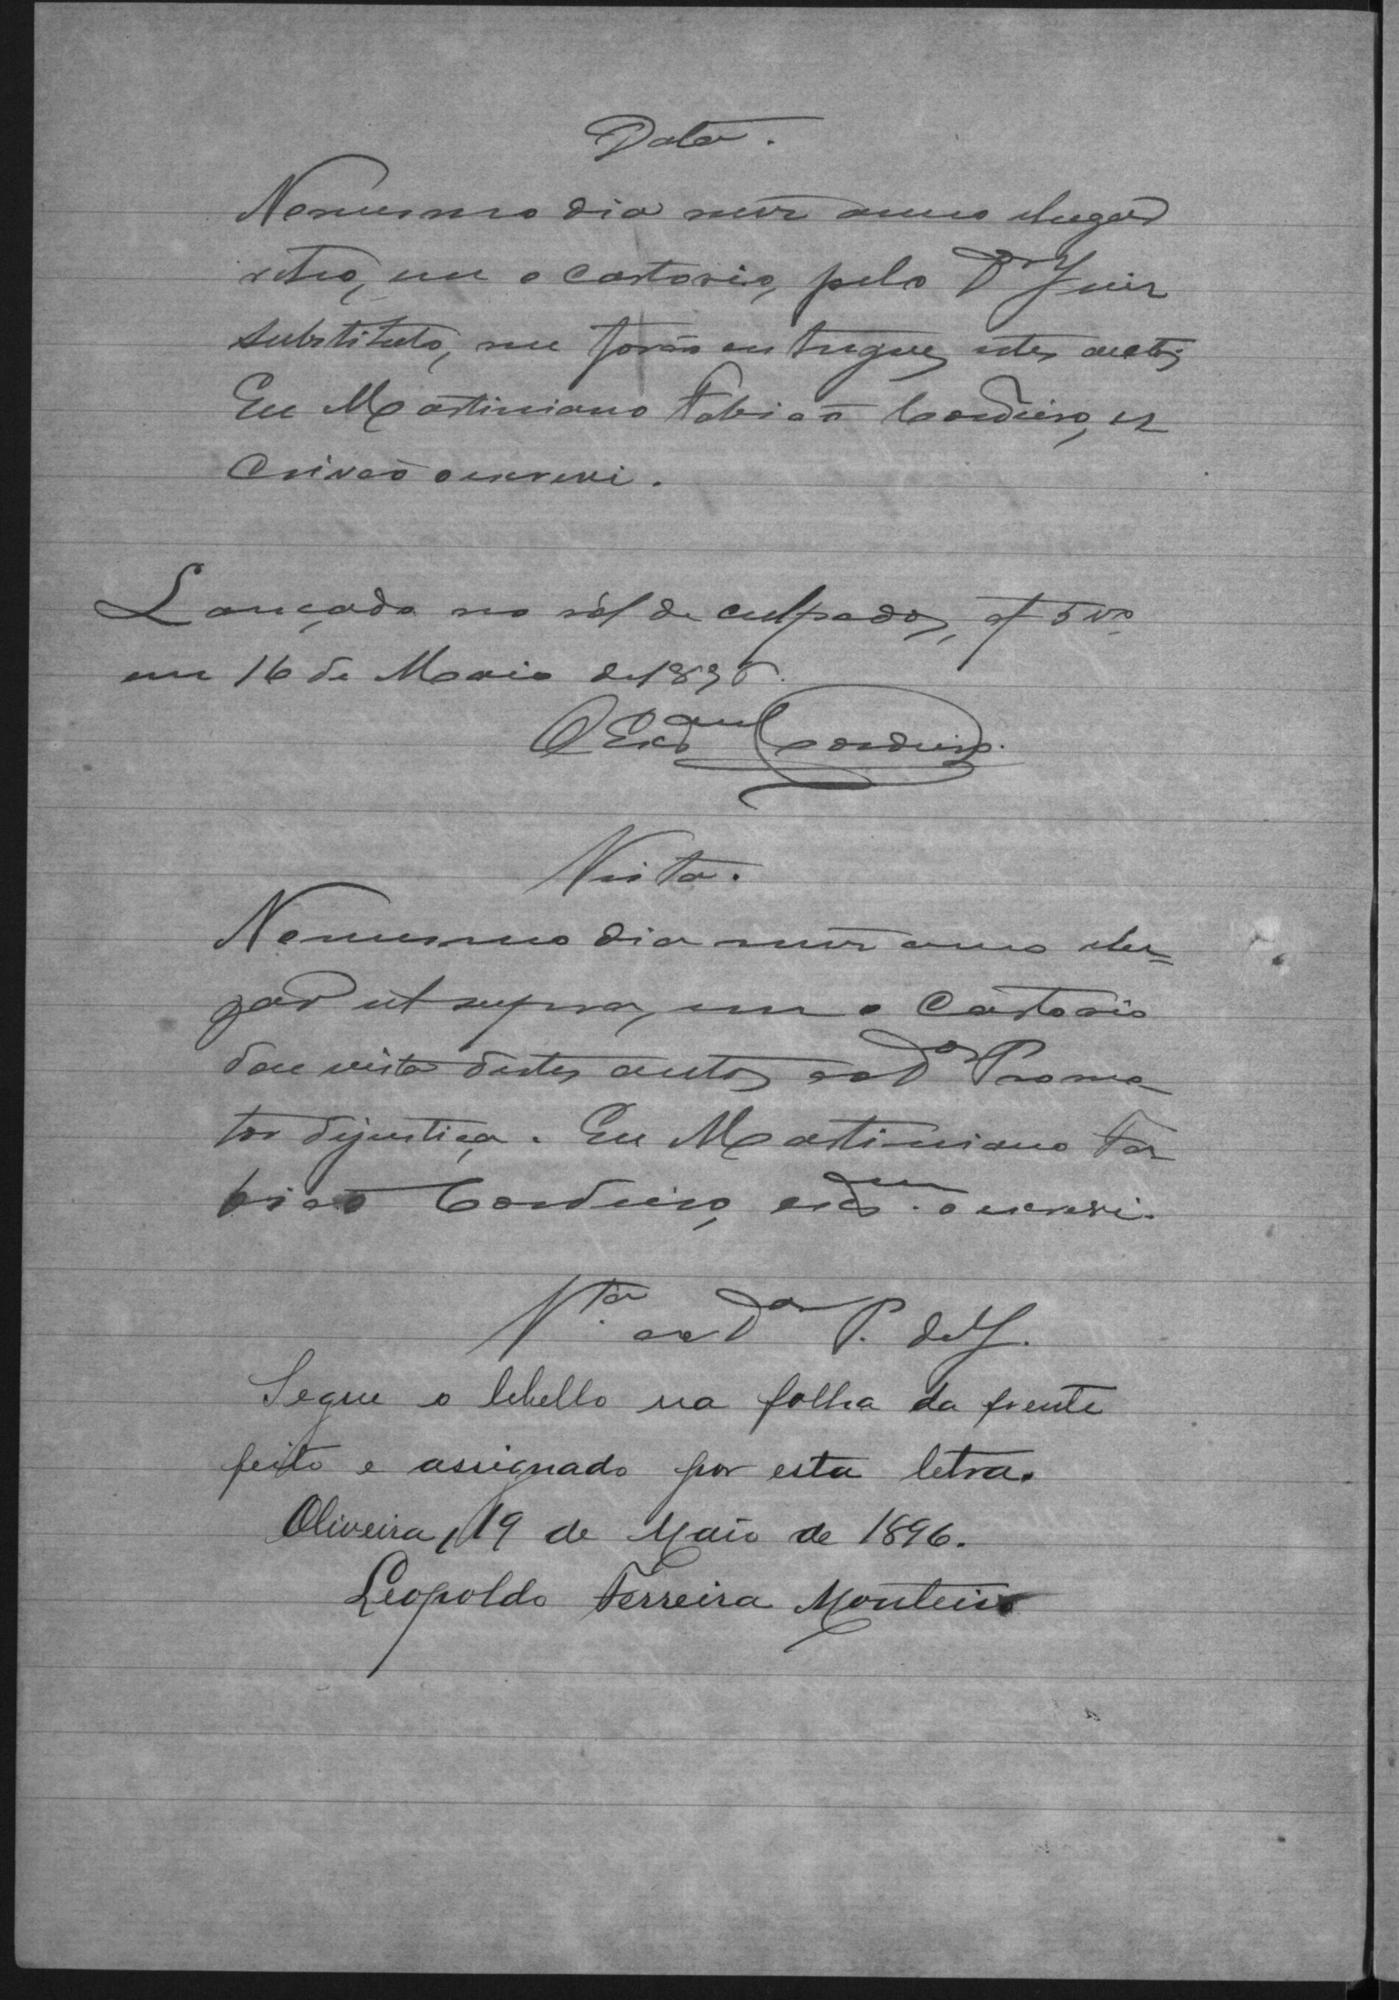 Data.
No mesmo dia mez anno e lugar
retro, em o cartorio, pelo Dor Juiz
substituto, me forão entregues estes autos
Eu Martiniano Fabião Cordeiro, es
crivão o escrevi.
Lançado no ról de culpados, af 5 vo
em 16 de Maio de 1896.
O Escdam Cordeiro.
Vista.
No mesmo dia mez anno e lu=
gar ut supra, em o Cartorio
dou vista destes autos ao Dor Promo
tor de justiça. Eu Martiniano Fa
bião Cordeiro, escdam. o escrevi.
Vta. ao Dor P. de J.
Segue o libello na folha da frente
feito e assignado por esta letra.
Oliveira, 19 de Maio de 1896.
Leopoldo Ferreira Monteiro